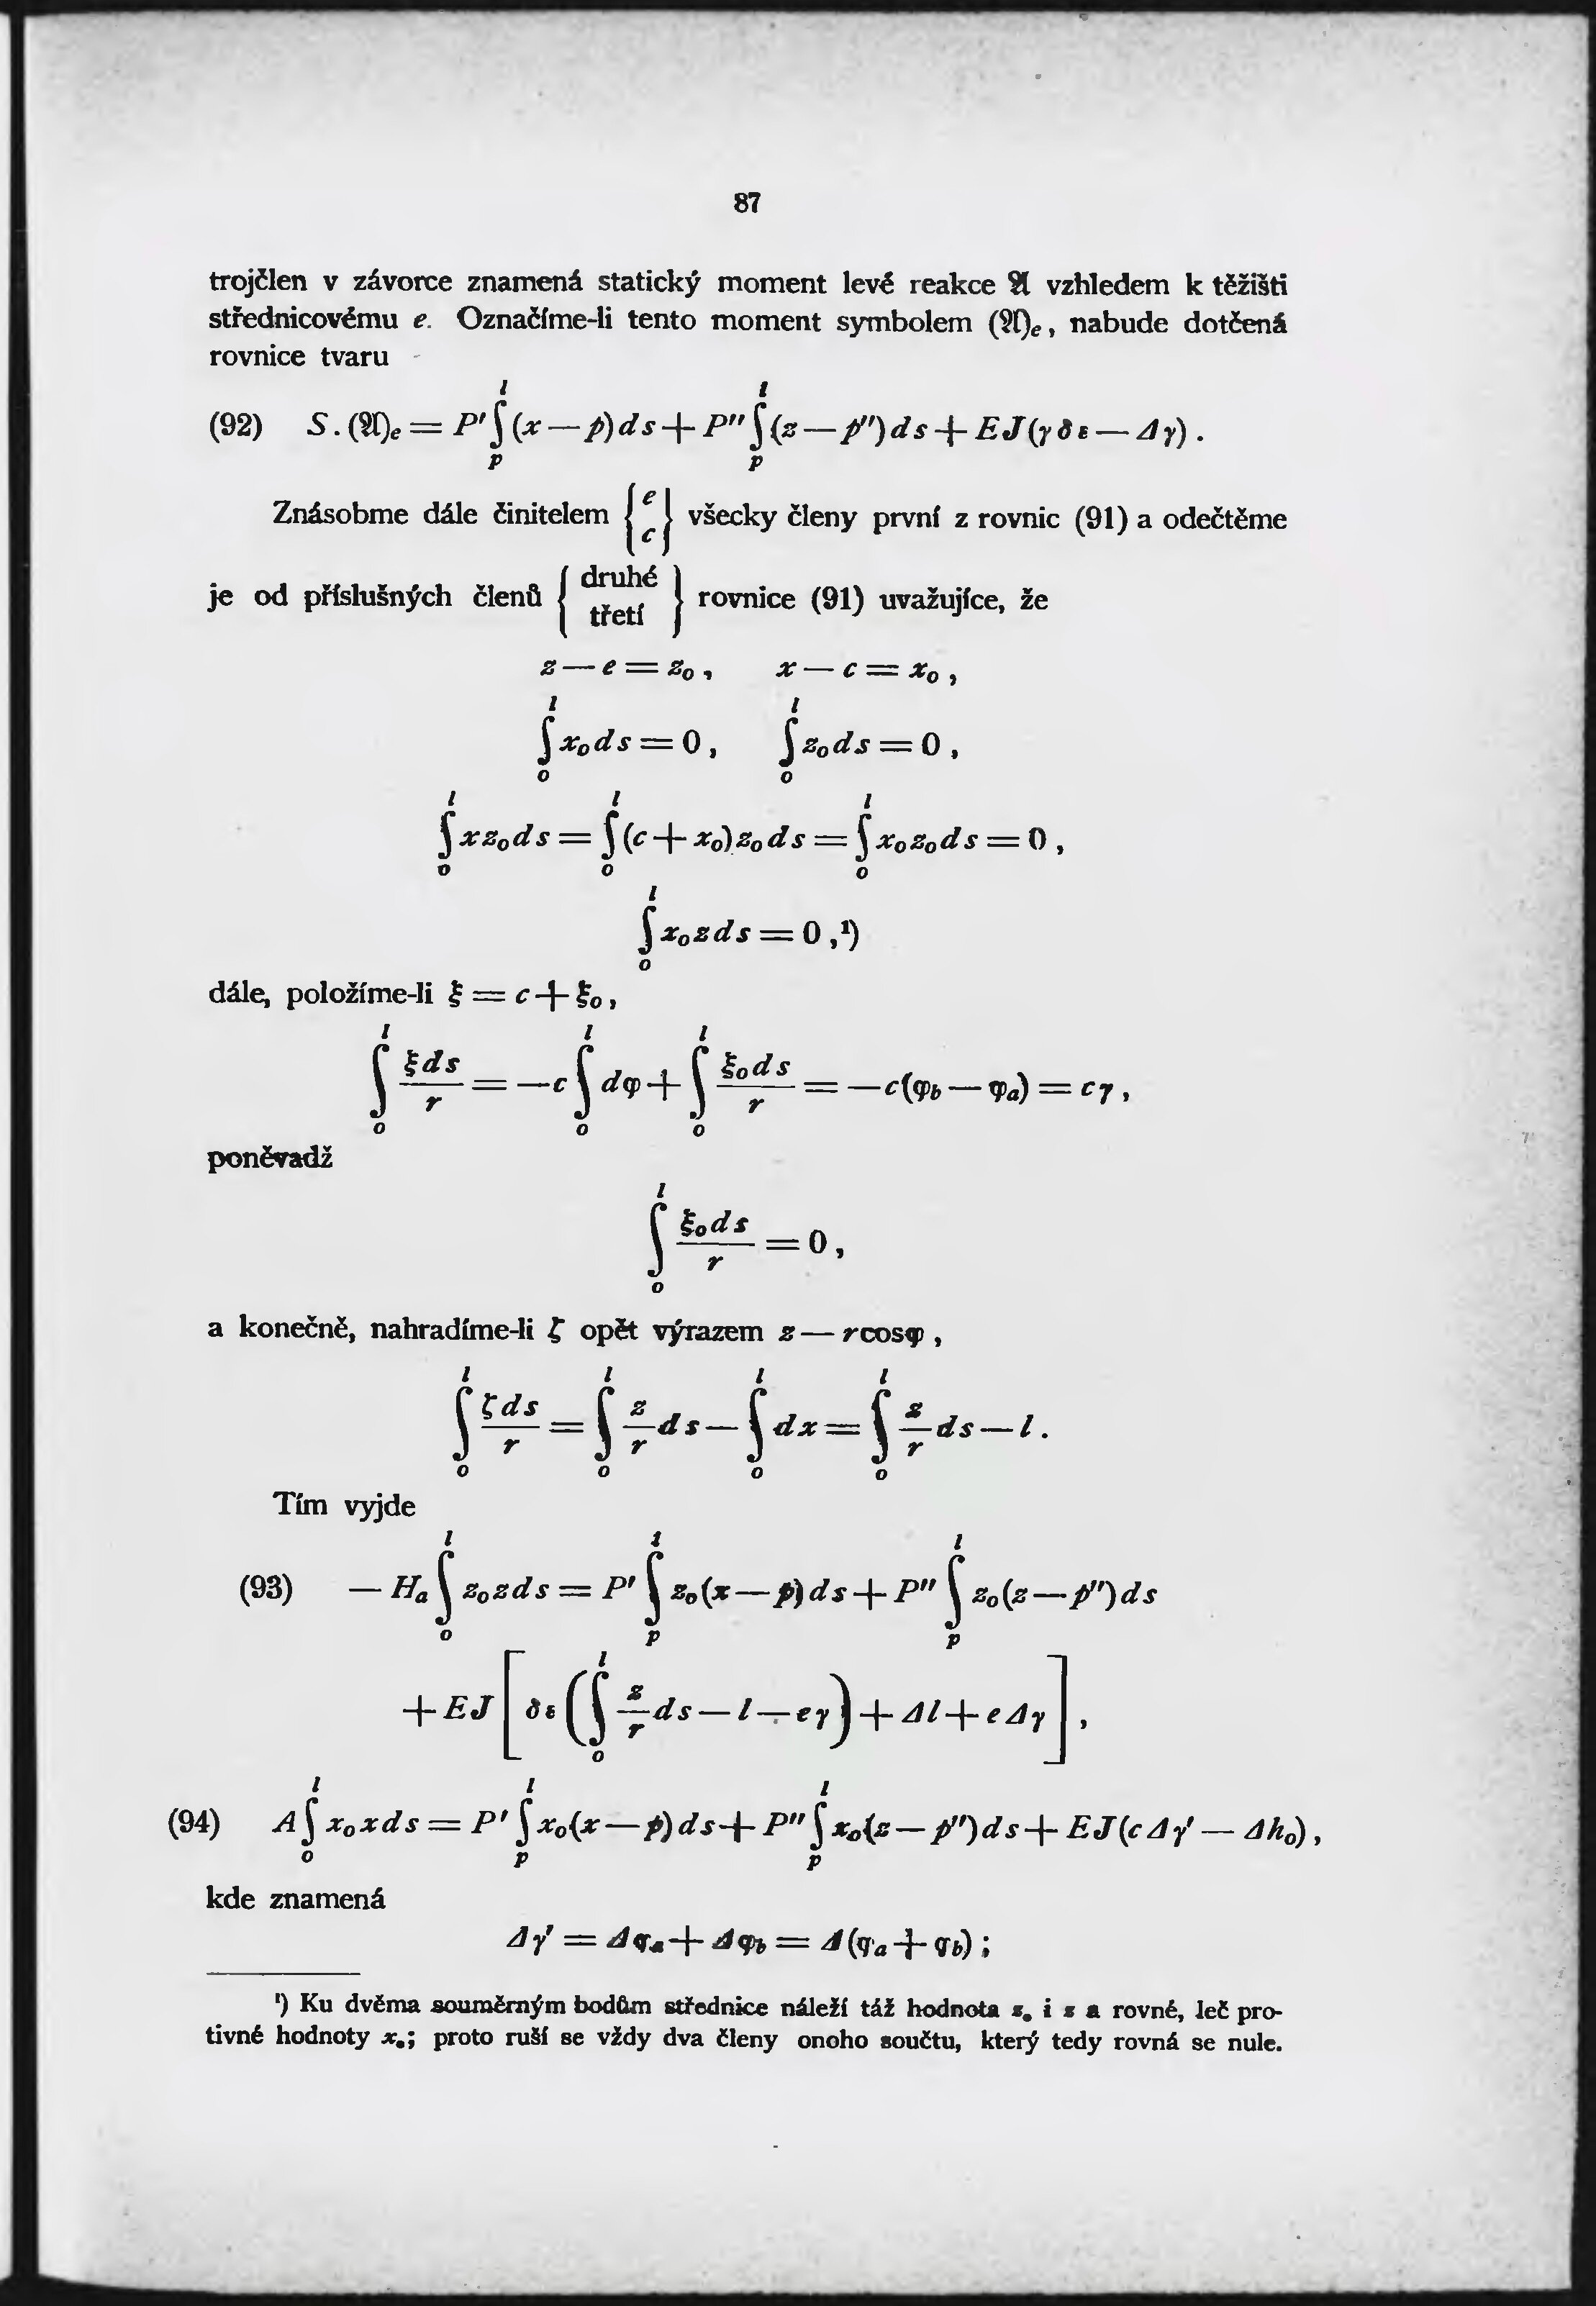 87
trojčlen v závorce znamená statický moment levé reakce 𝔄 vzhledem k těžišti
střednicovému e. Označíme-li tento moment symbolem (𝔄)ₑ, nabude dotčená
rovnice tvaru
(92) S.(𝔄)ₑ = P′ ∫_p^l (x — p) ds + P″ ∫_p^l (z — p″) ds + EJ(γδε — Δγ).
Znásobme dále činitelem {e c} všecky členy první z rovnic (91) a odečtěme
je od příslušných členů {druhé třetí} rovnice (91) uvažujíce, že
z — e = z₀, x — c = x₀,
∫_o^l x₀ds = 0, ∫_o^l z₀ds = 0,
∫_o^l xz₀ds = ∫_o^l (c + x₀)z₀ds = ∫_o^l x₀z₀ds = 0,
∫_o^l x₀zds = 0,¹)
dále, položíme-li ξ = c + ξ₀,
∫_o^l ξds/r = —c ∫_o^l dφ + ∫_o^l ξ₀ds/r = —c(φ_b — φ_a) = cγ,
poněvadž
∫_o^l ξ₀ds/r = 0,
a konečně, nahradíme-li ζ opět výrazem z — rcosφ,
∫_o^l ζds/r = ∫_o^l z/r ds — ∫_o^l dx = ∫_o^l z/r ds — l.
Tím vyjde
(93) — H_a ∫_o^l z₀zds = P′ ∫_p^l z₀(x — p) ds + P″ ∫_p^l z₀(z — p″) ds
+ EJ [δε (∫_o^l z/r ds — l — eγ) + Δl + eΔγ],
(94) A ∫_o^l x₀xds = P′ ∫_p^l x₀(x — p) ds + P″ ∫_p^l x₀(z — p″) ds + EJ(cΔγ′ — Δh₀),
kde znamená
Δγ′ = Δφ_a + Δφ_b = Δ(φ_a + φ_b);
¹) Ku dvěma souměrným bodům střednice náleží táž hodnota z₀ i z a rovné, leč pro-
tivné hodnoty x₀; proto ruší se vždy dva členy onoho součtu, který tedy rovná se nule.